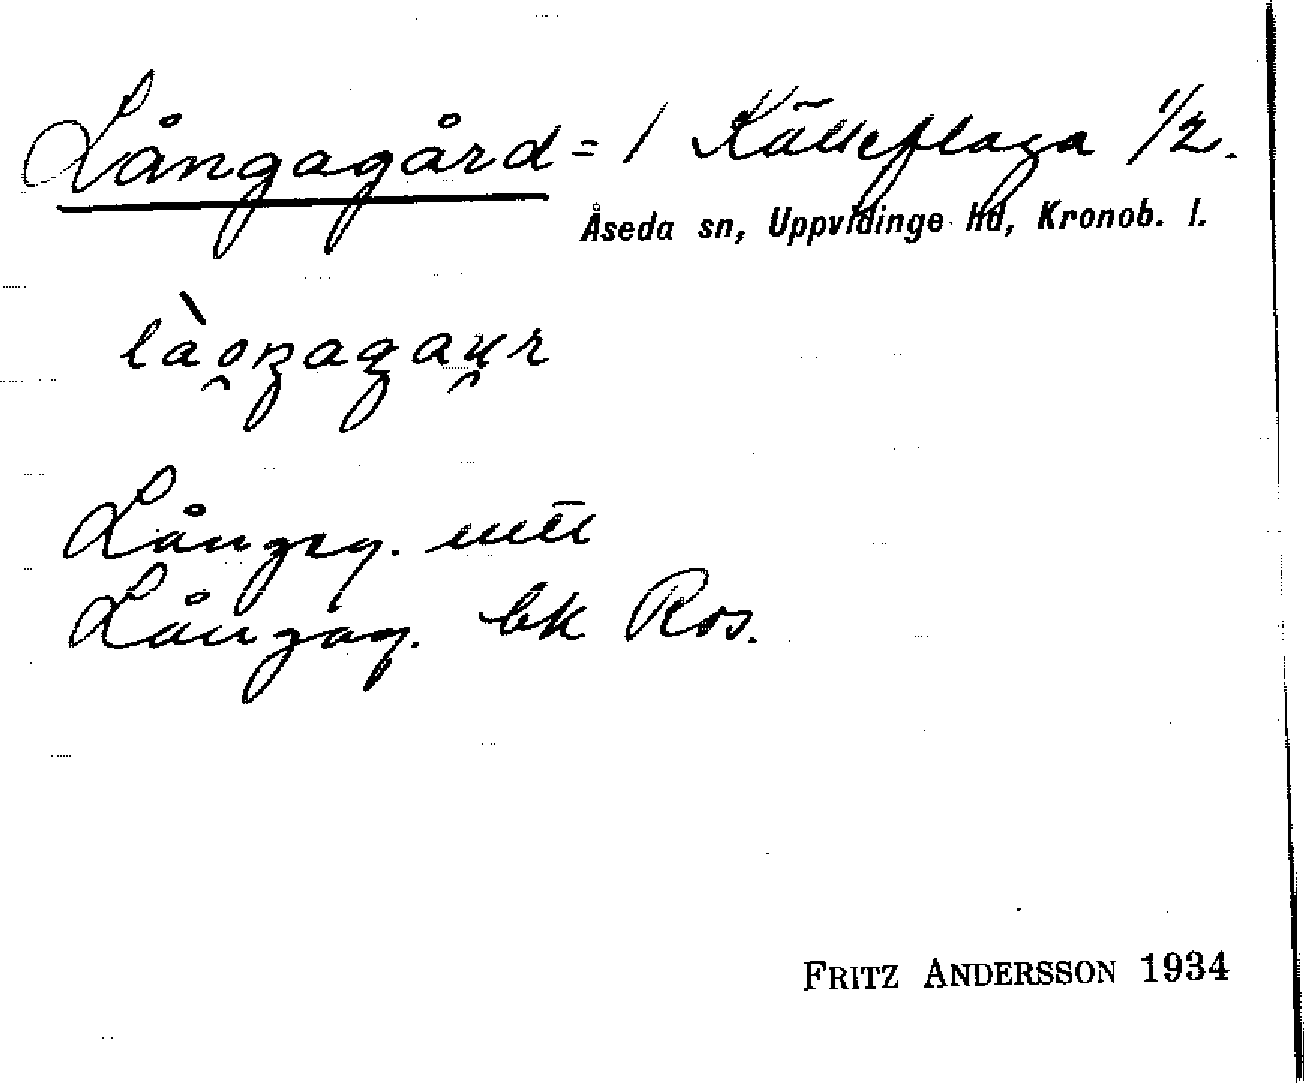 Långagård = 1 Källeflaga 1/2.
Åseda sn, Uppvidinge hd, Kronob. l.
Långag.
Långag. bk Ros.
FRITZ ANDERSSON 1934